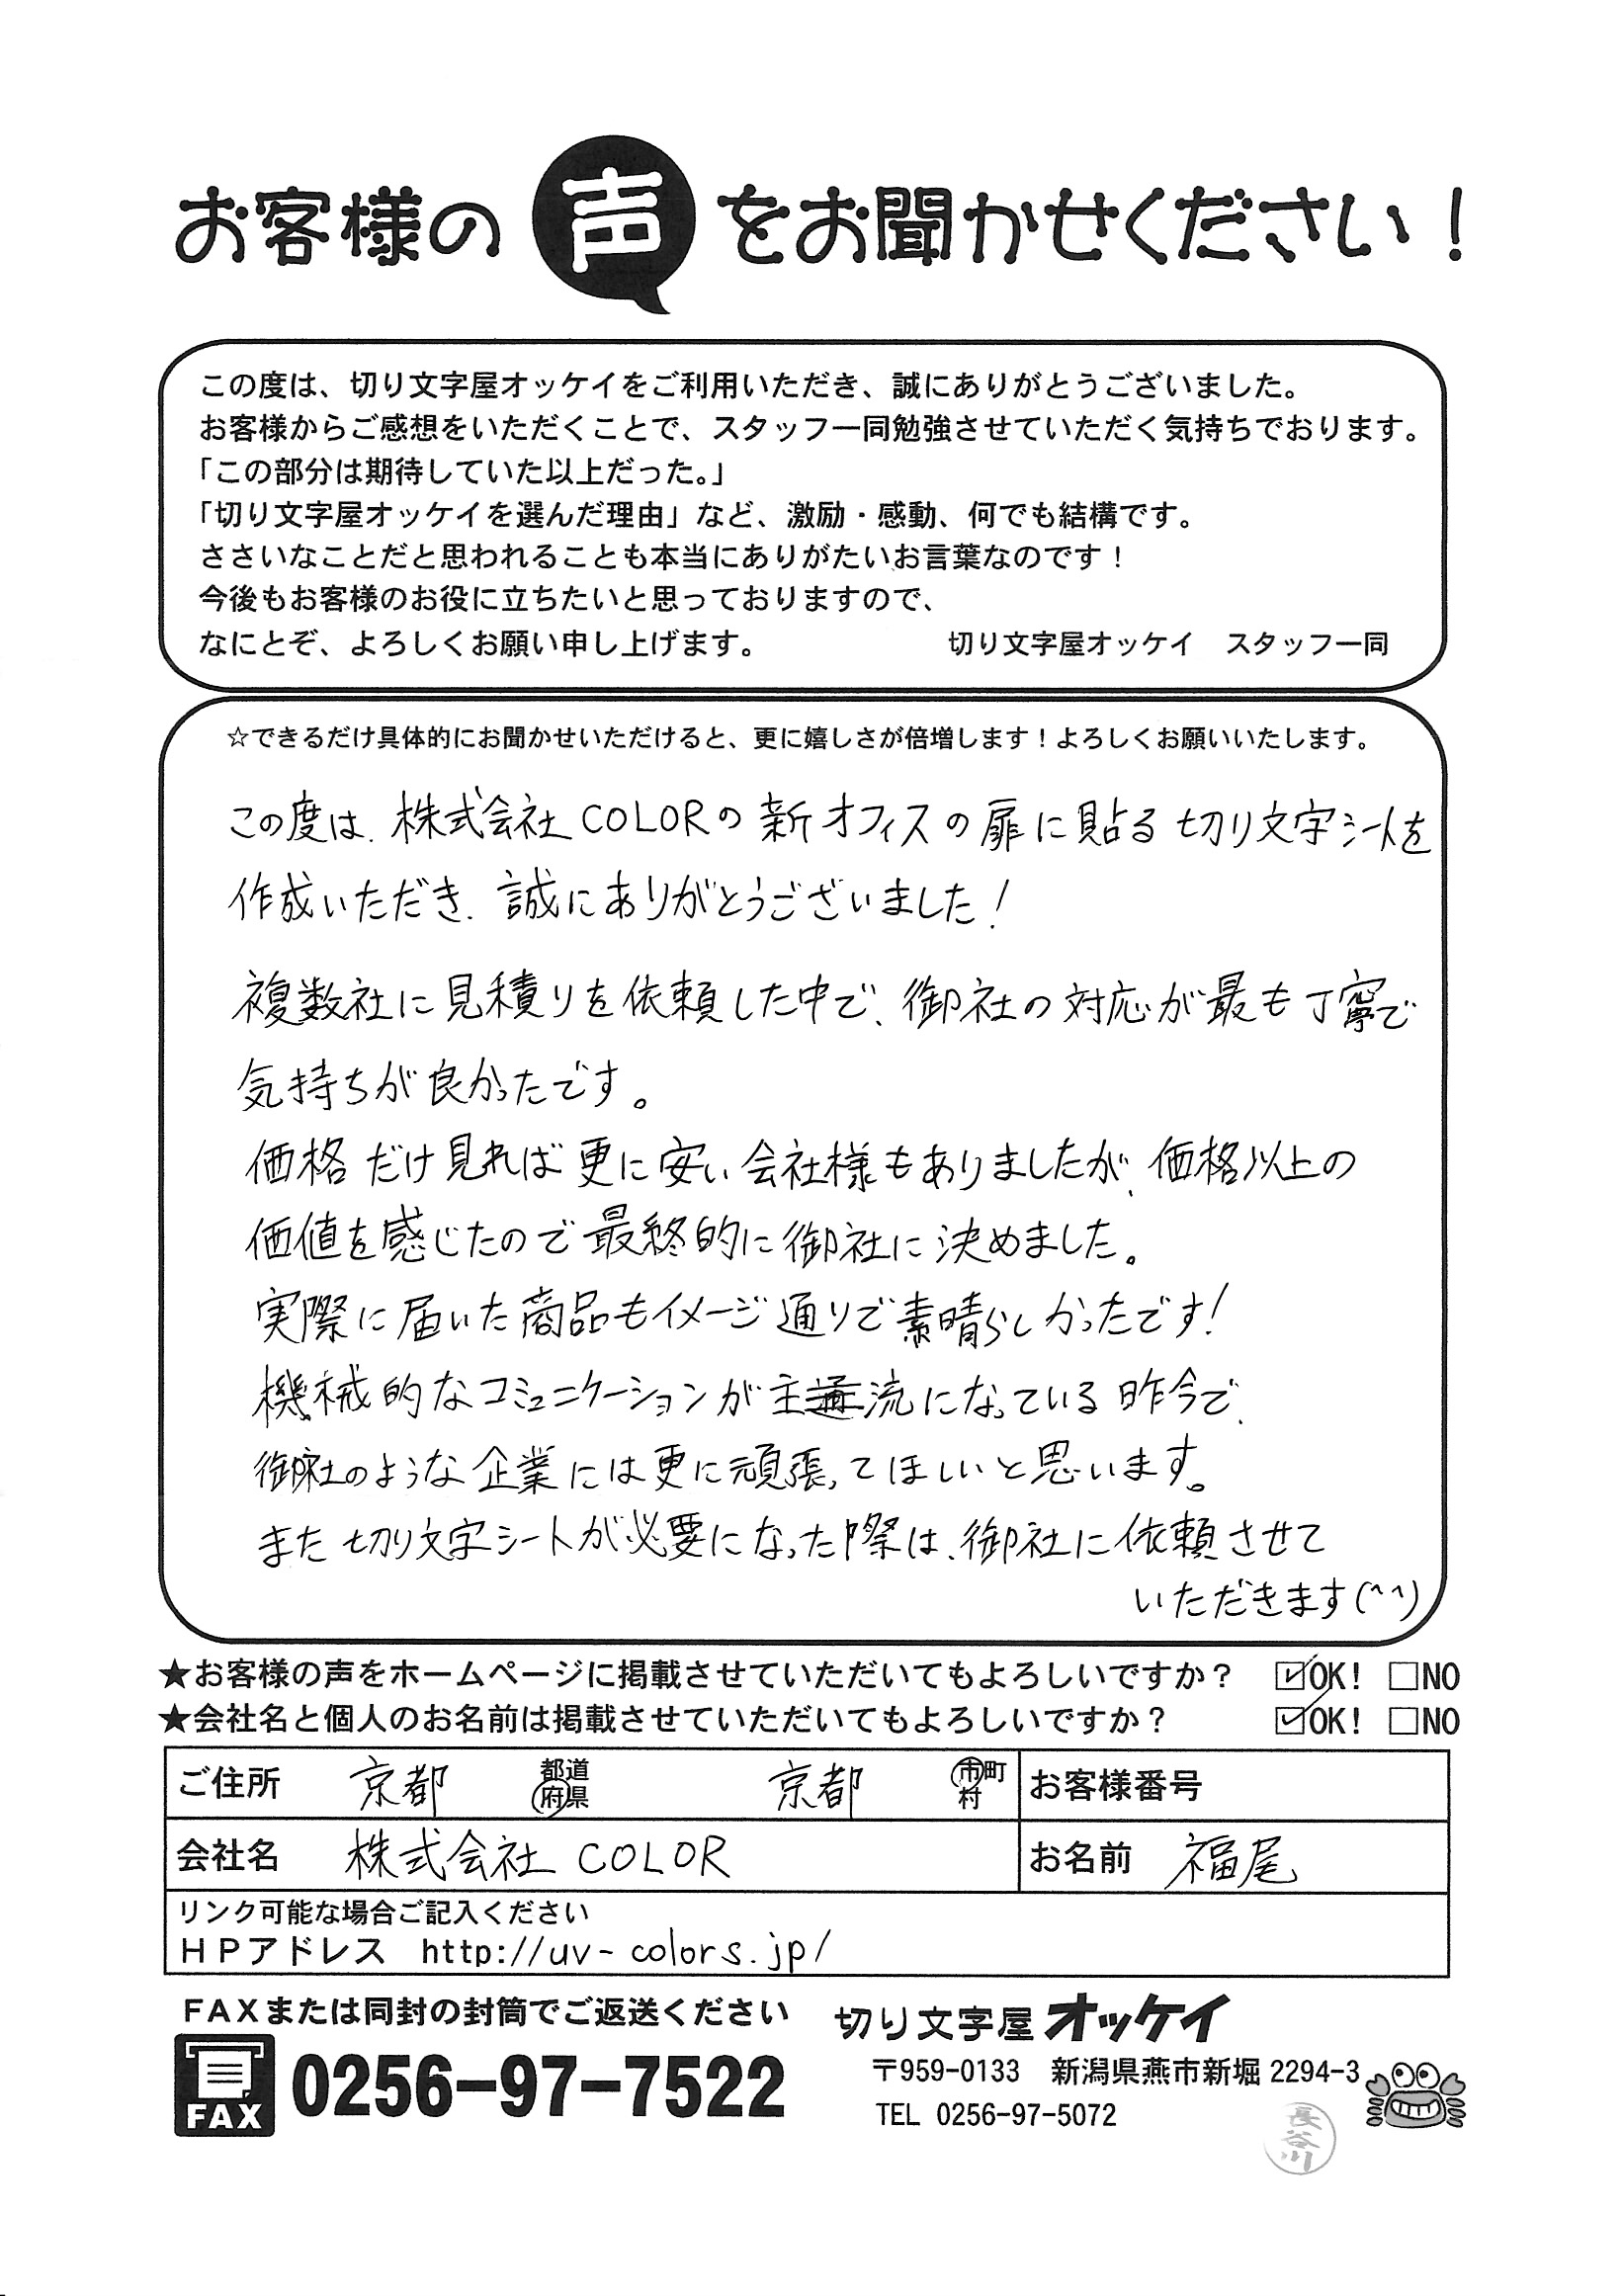 お客様の声をお聞かせください！
この度は、切り文字屋オッケイをご利用いただき、誠にありがとうございました。
お客様からご感想をいただくことで、スタッフ一同勉強させていただく気持ちでおります。
「この部分は期待していた以上だった。」
「切り文字屋オッケイを選んだ理由」など、激励・感動、何でも結構です。
ささいなことだと思われることも本当にありがたいお言葉なのです！
今後もお客様のお役に立ちたいと思っておりますので、
なにとぞ、よろしくお願い申し上げます。　切り文字屋オッケイ　スタッフ一同
☆できるだけ具体的にお聞かせいただけると、更に嬉しさが倍増します！よろしくお願いいたします。
この度は、株式会社COLORの新オフィスの扉に貼る切り文字シートを
作成いただき、誠にありがとうございました！
複数社に見積りを依頼した中で、御社の対応が最も丁寧で
気持ちが良かったです。
価格だけ見れば更に安い会社様もありましたが、価格以上の
価値を感じたので最終的に御社に決めました。
実際に届いた商品もイメージ通りで素晴らしかったです！
機械的なコミュニケーションが主流になっている昨今で、
御社のような企業には更に頑張ってほしいと思います。
また切り文字シートが必要になった際は、御社に依頼させて
いただきます(^^)
★お客様の声をホームページに掲載させていただいてもよろしいですか？　☑OK！ □NO
★会社名と個人のお名前は掲載させていただいてもよろしいですか？　☑OK！ □NO
ご住所　京都　都道府県　京都　市町村　お客様番号
会社名　株式会社 COLOR　お名前　福尾
リンク可能な場合ご記入ください
ＨＰアドレス　http://uv-colors.jp/
ＦＡＸまたは同封の封筒でご返送ください
FAX 0256-97-7522
切り文字屋オッケイ
〒959-0133　新潟県燕市新堀 2294-3
TEL 0256-97-5072
長谷川